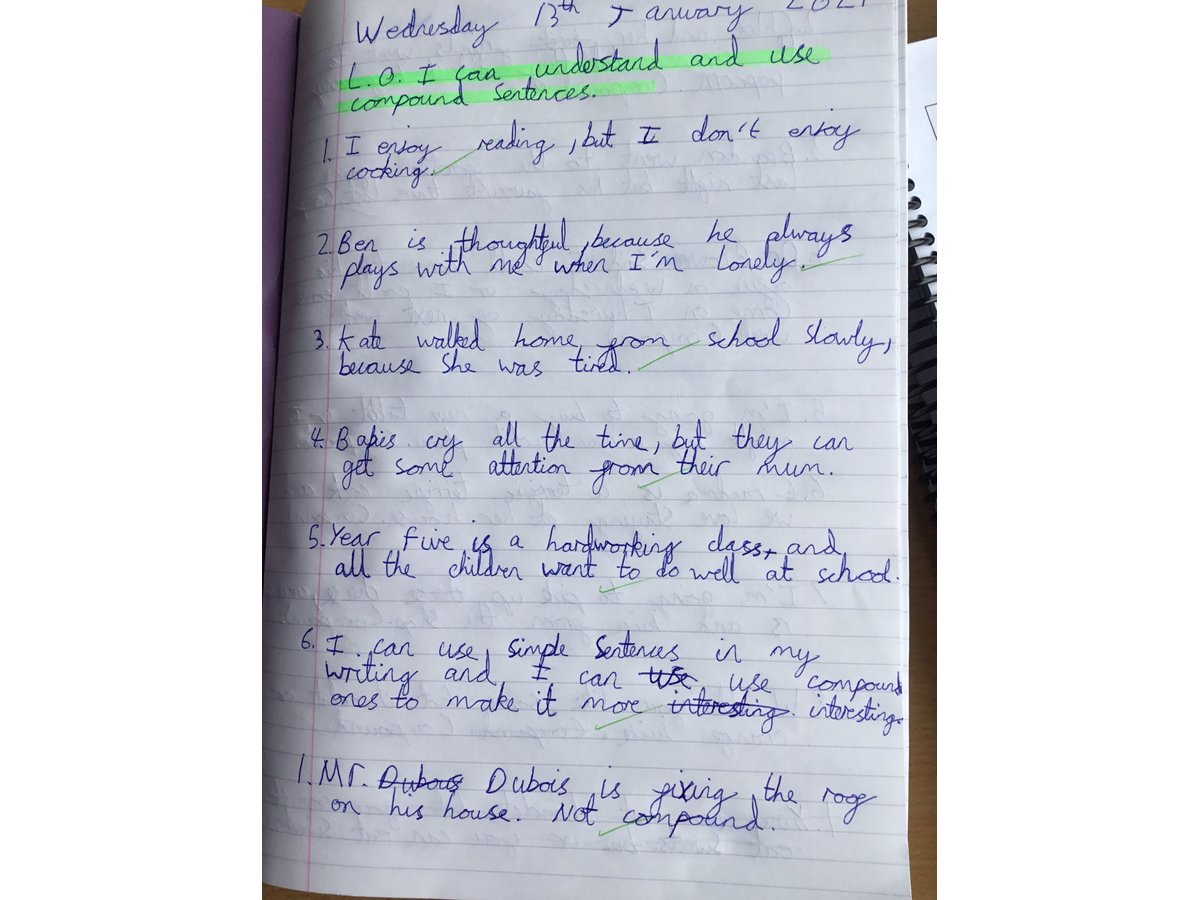 Wednesday 13th January 2021
L.O. I can understand and use
compound sentences.
1. I enjoy reading, but I don't enjoy
cooking.
2. Ben is thoughtful, because he always
plays with me when I'm lonely.
3. Kate walked home from school slowly,
because she was tired.
4. Babies cry all the time, but they can
get some attention from their mum.
5. Year five is a hardworking class, and
all the children want to do well at school.
6. I can use simple sentences in my
writing and I can use use compound
ones to make it more interesting. interesting.
1. Mr. Dubous Dubois is fixing the roof
on his house. Not compound.